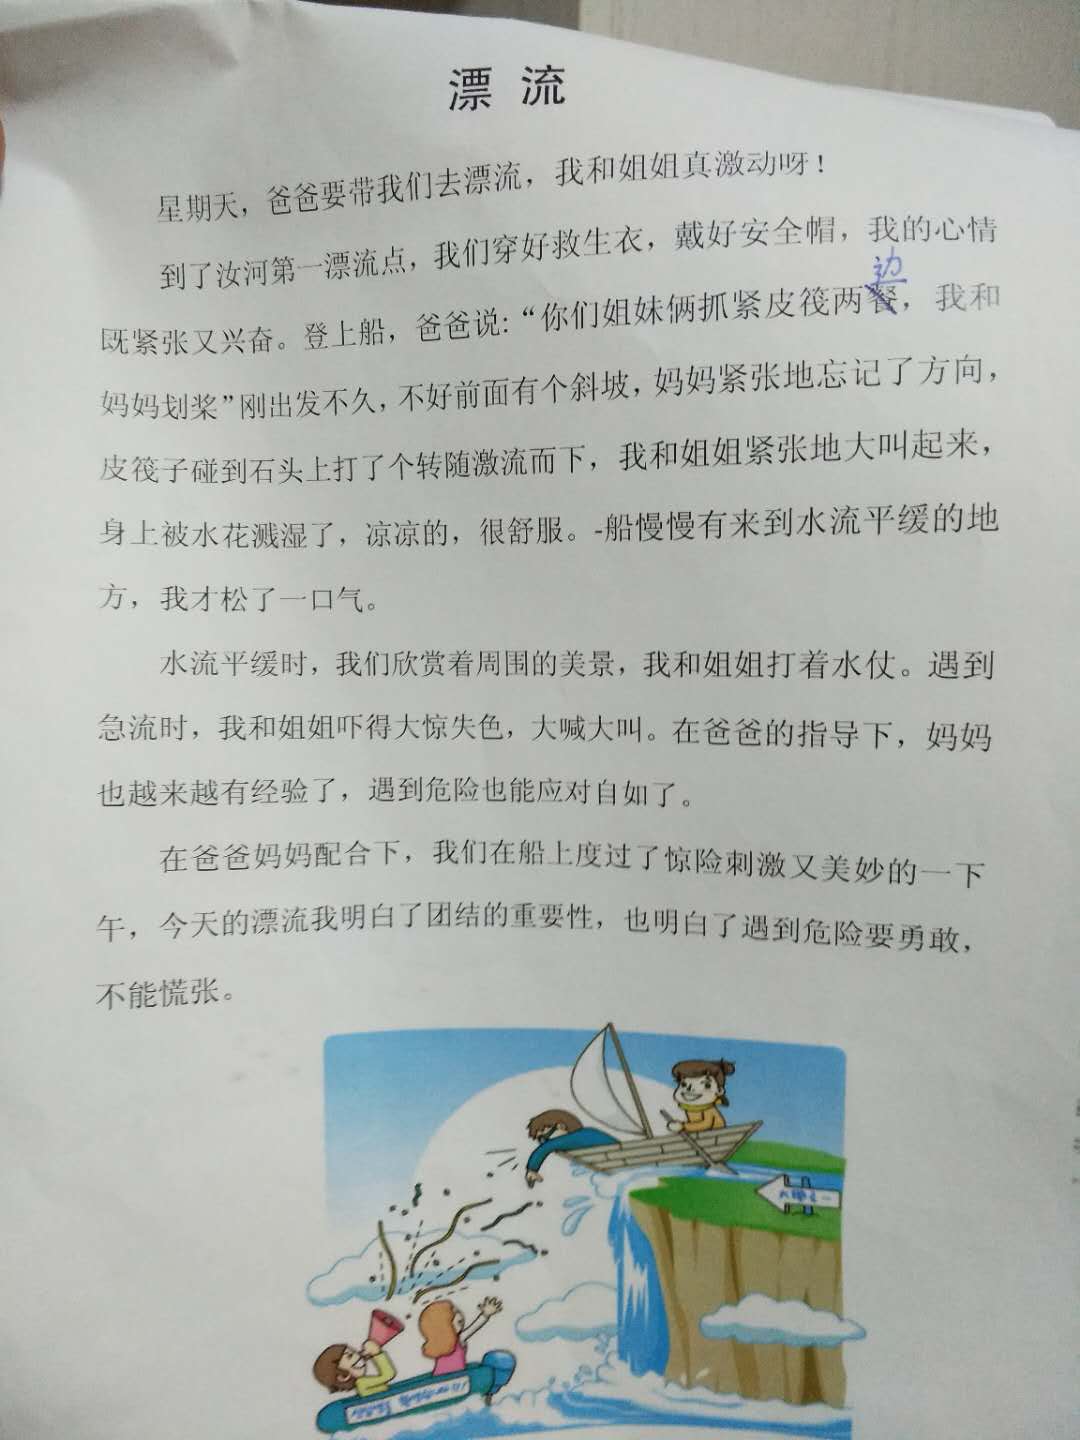 漂 流
星期天，爸爸要带我们去漂流，我和姐姐真激动呀！
到了汝河第一漂流点，我们穿好救生衣，戴好安全帽，我的心情
边
既紧张又兴奋。登上船，爸爸说：“你们姐妹俩抓紧皮筏两餐，我和
妈妈划桨”刚出发不久，不好前面有个斜坡，妈妈紧张地忘记了方向，
皮筏子碰到石头上打了个转随激流而下，我和姐姐紧张地大叫起来，
身上被水花溅湿了，凉凉的，很舒服。-船慢慢有来到水流平缓的地
方，我才松了一口气。
水流平缓时，我们欣赏着周围的美景，我和姐姐打着水仗。遇到
急流时，我和姐姐吓得大惊失色，大喊大叫。在爸爸的指导下，妈妈
也越来越有经验了，遇到危险也能应对自如了。
在爸爸妈妈配合下，我们在船上度过了惊险刺激又美妙的一下
午，今天的漂流我明白了团结的重要性，也明白了遇到危险要勇敢，
不能慌张。